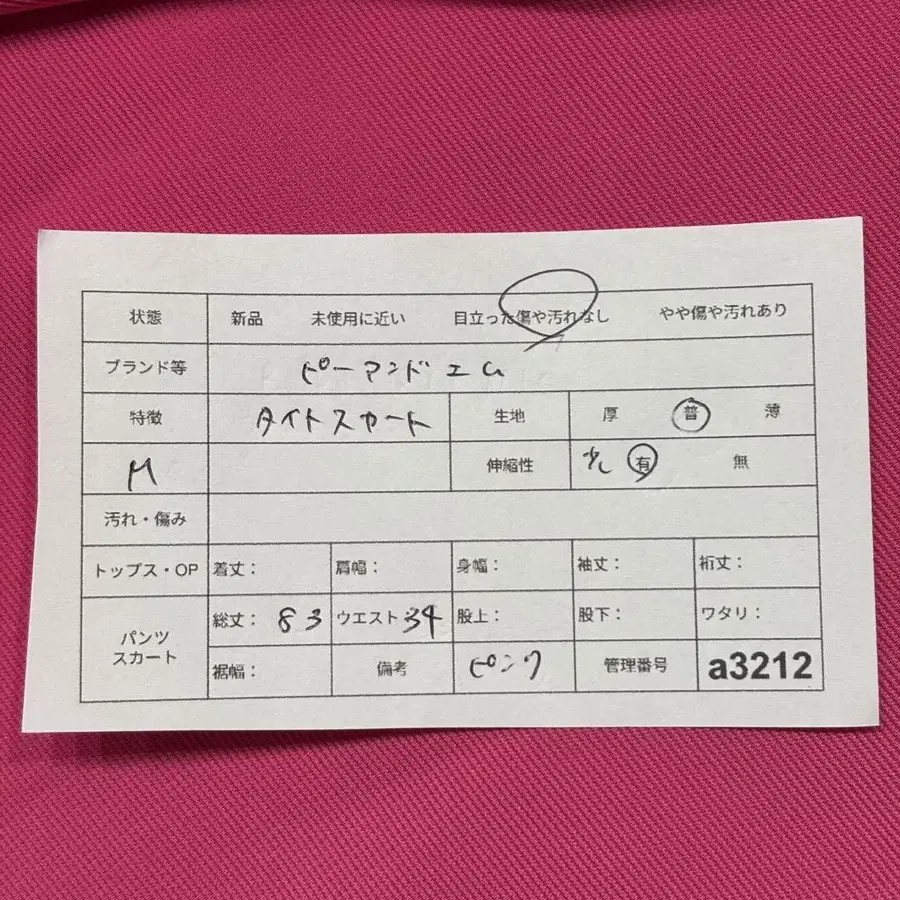 状態 新品 未使用に近い 目立った傷や汚れなし やや傷や汚れあり
ブランド等 ピーアンドエム
特徴 タイトスカート 生地 厚 普 薄
M 伸縮性 少し 有 無
汚れ・傷み
トップス・OP 着丈： 肩幅： 身幅： 袖丈： 裄丈：
パンツ スカート 総丈： 83 ウエスト：34 股上： 股下： ワタリ：
裾幅： 備考 ピンク 管理番号 a3212